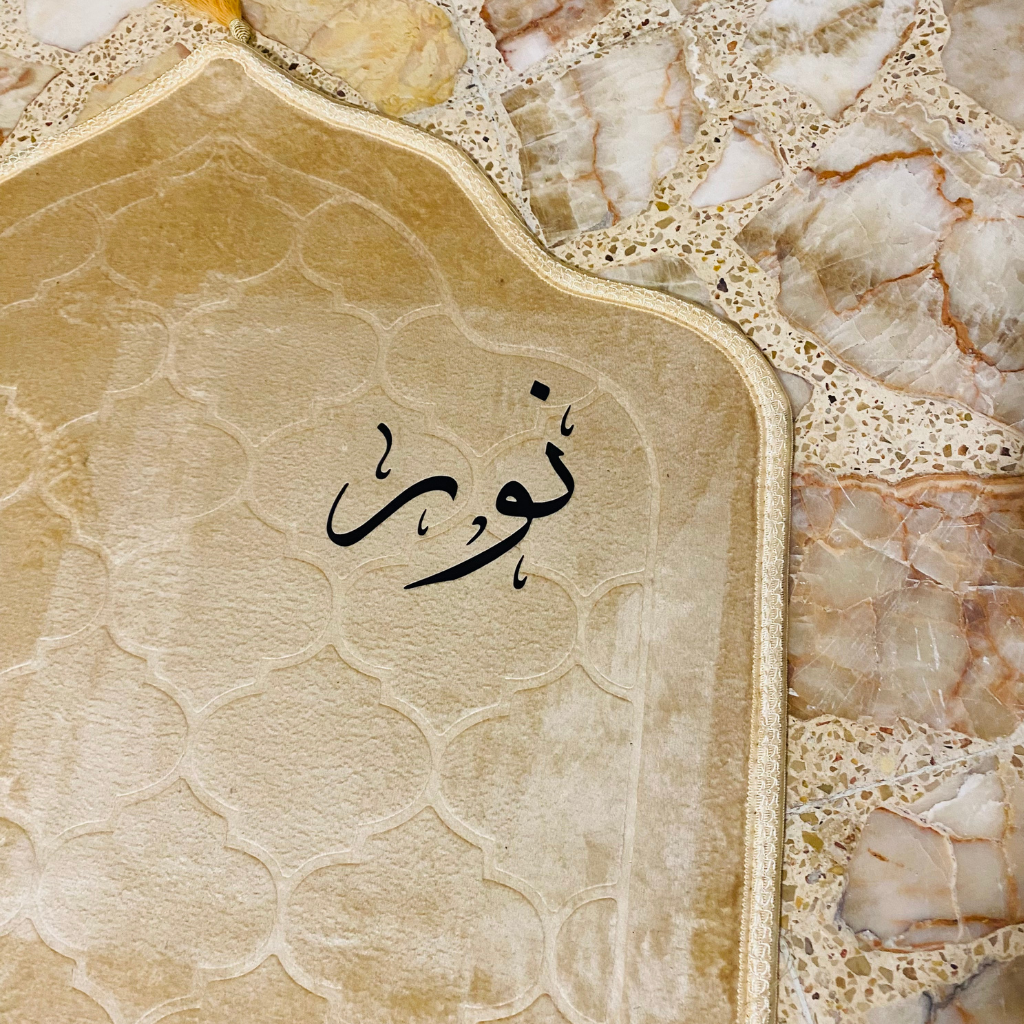 نور